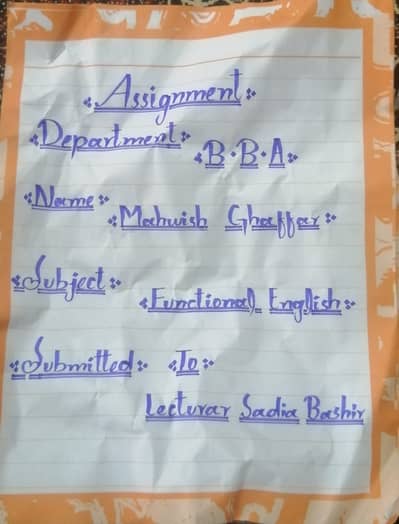 Assignment
Department
B.B.A
Name
Mahwish Ghaffar
Subject
Functional English
Submitted To
Lecturar Sadia Bashir